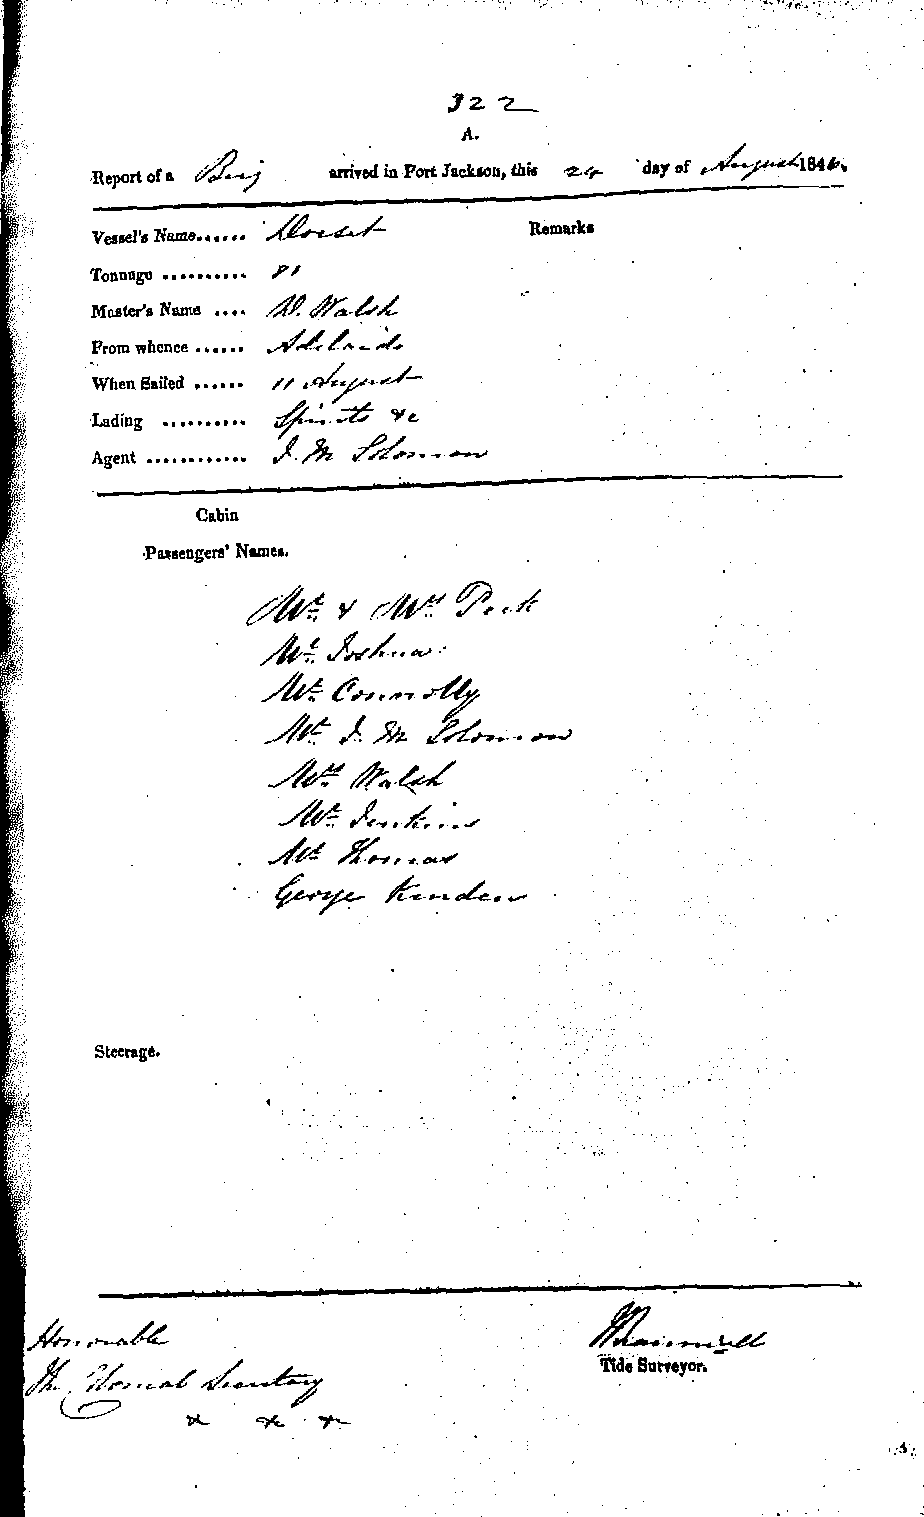 322
A.
Report of a Brig arrived in Port Jackson, this 24 day of August 184
Vessel's Name...... Dorset Remarks
Tonnage .......... 81
Master's Name .... W. Walsh
From whence ...... Adelaide
When Sailed ...... 11 August
Lading .......... Spirits &c
Agent ............ I. M Solomon
Cabin
Passengers' Names.
Mr & Mrs Peck
Mr Joshua
Mr Connolly
Mr I. M Solomon
Mrs Walsh
Mr Jenkins
Mr Thomas
George
Steerage.
Honorable
The Colonial Secretary
&c &c &c
Tide Surveyor.